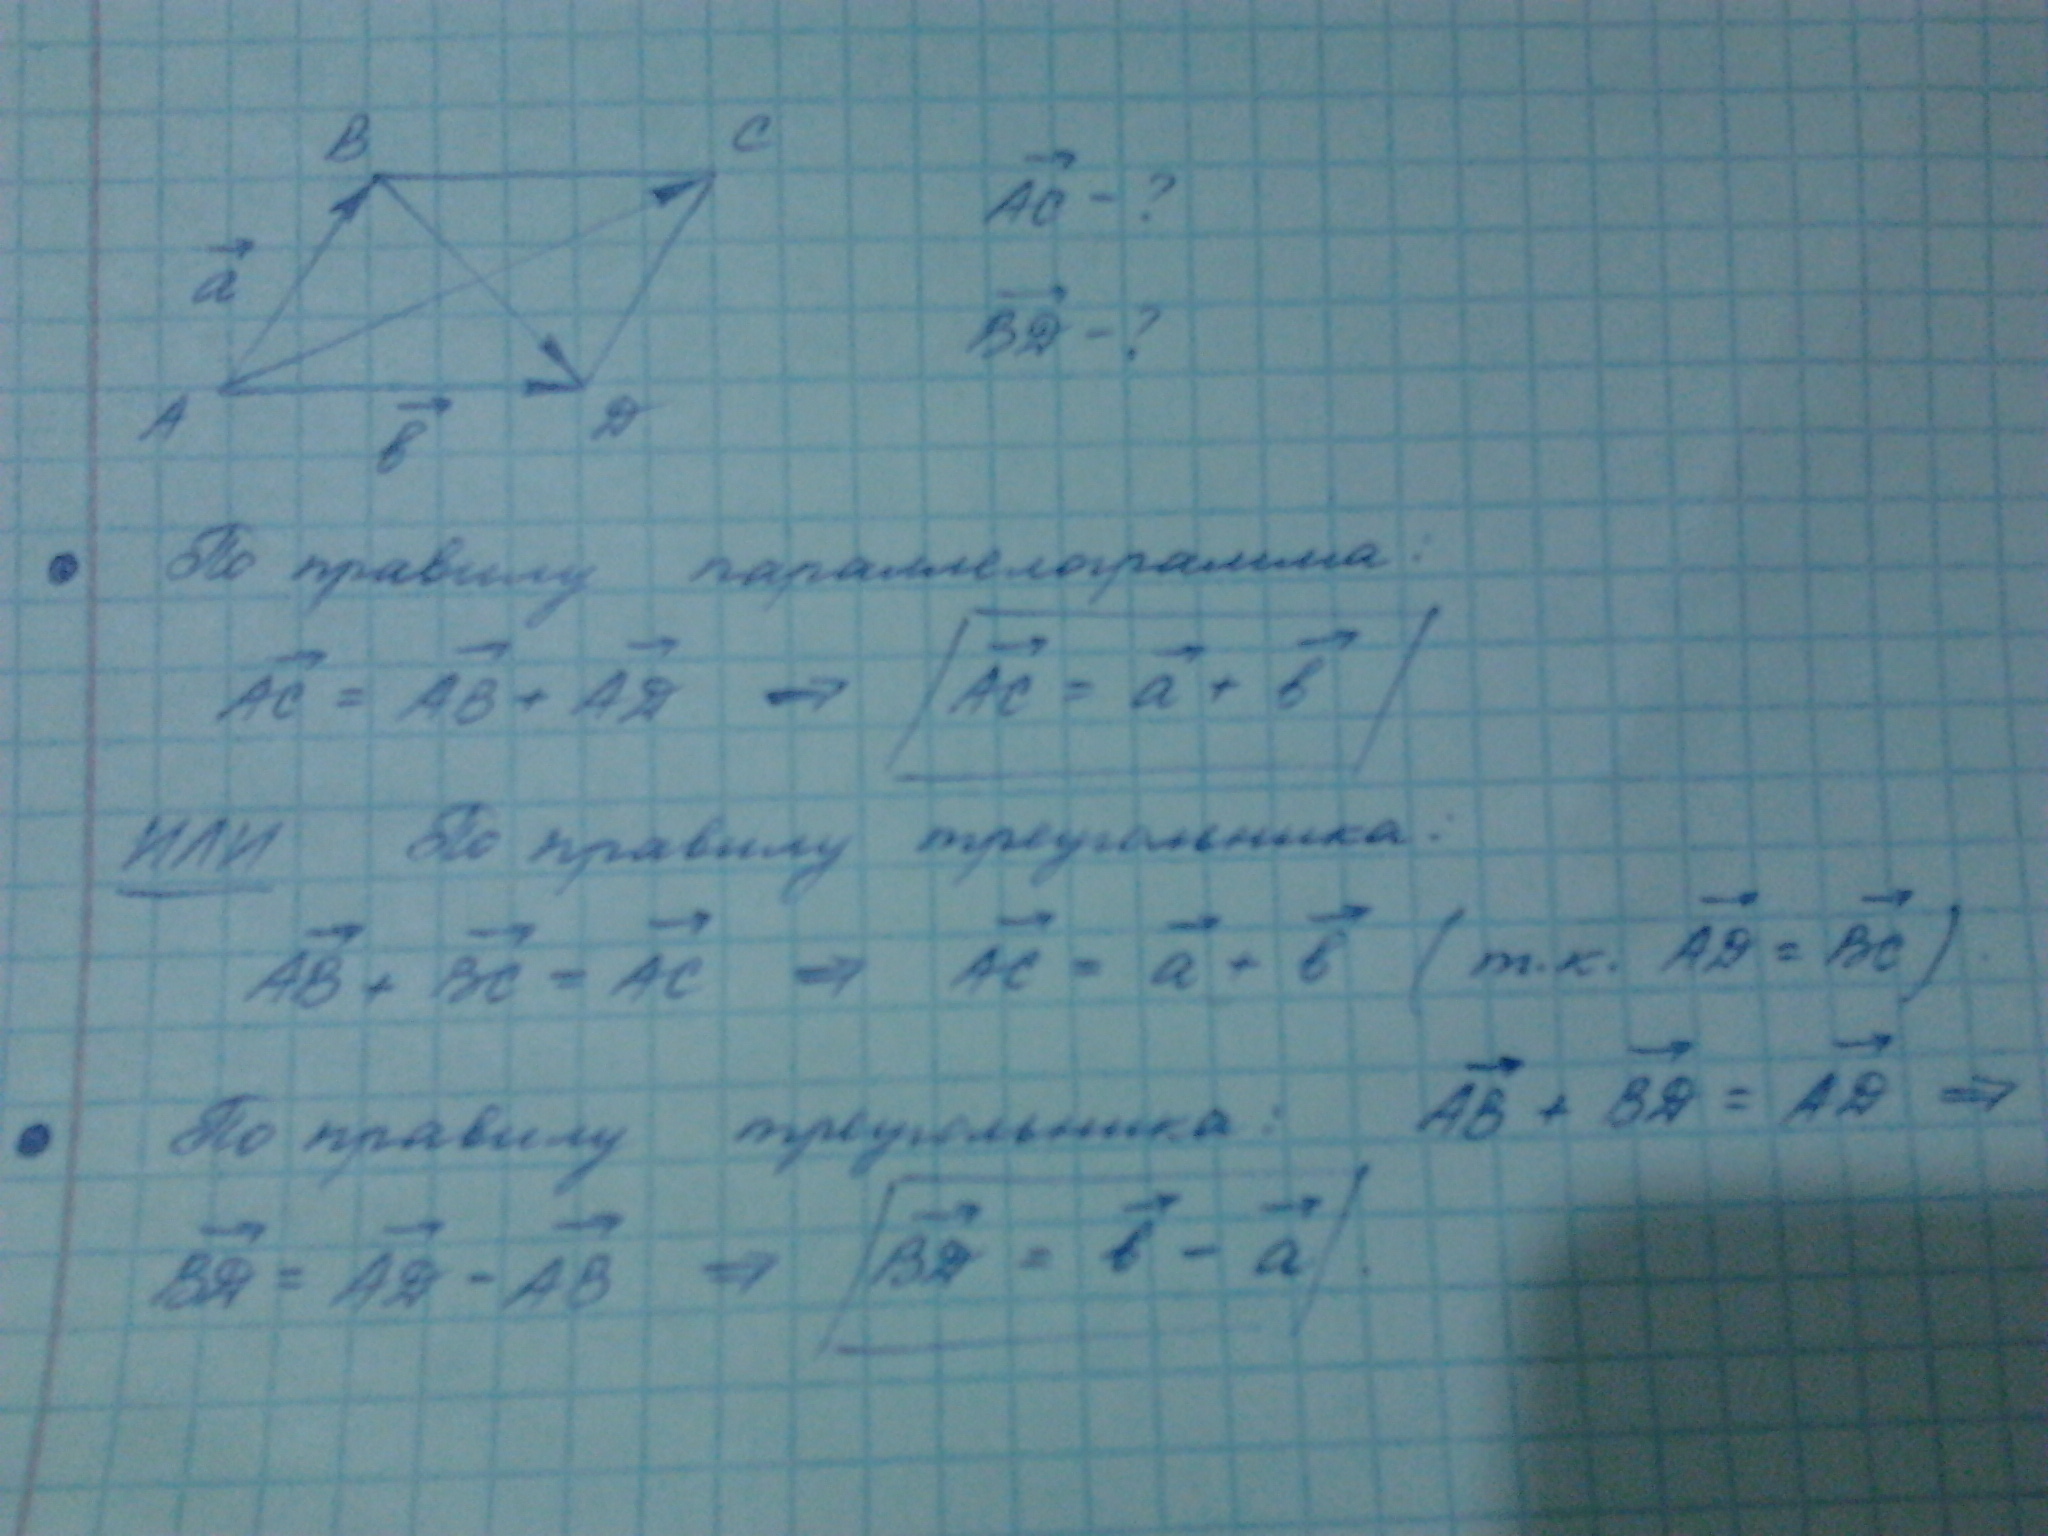 B C
a⃗
A b⃗ D
AC⃗ - ?
BD⃗ - ?
• По правилу параллелограмма:
AC⃗ = AB⃗ + AD⃗ ⇒ AC⃗ = a⃗ + b⃗
ИЛИ По правилу треугольника:
AB⃗ + BC⃗ = AC⃗ ⇒ AC⃗ = a⃗ + b⃗ (т.к. AD⃗ = BC⃗).
• По правилу треугольника: AB⃗ + BD⃗ = AD⃗ ⇒
BD⃗ = AD⃗ - AB⃗ ⇒ BD⃗ = b⃗ - a⃗.